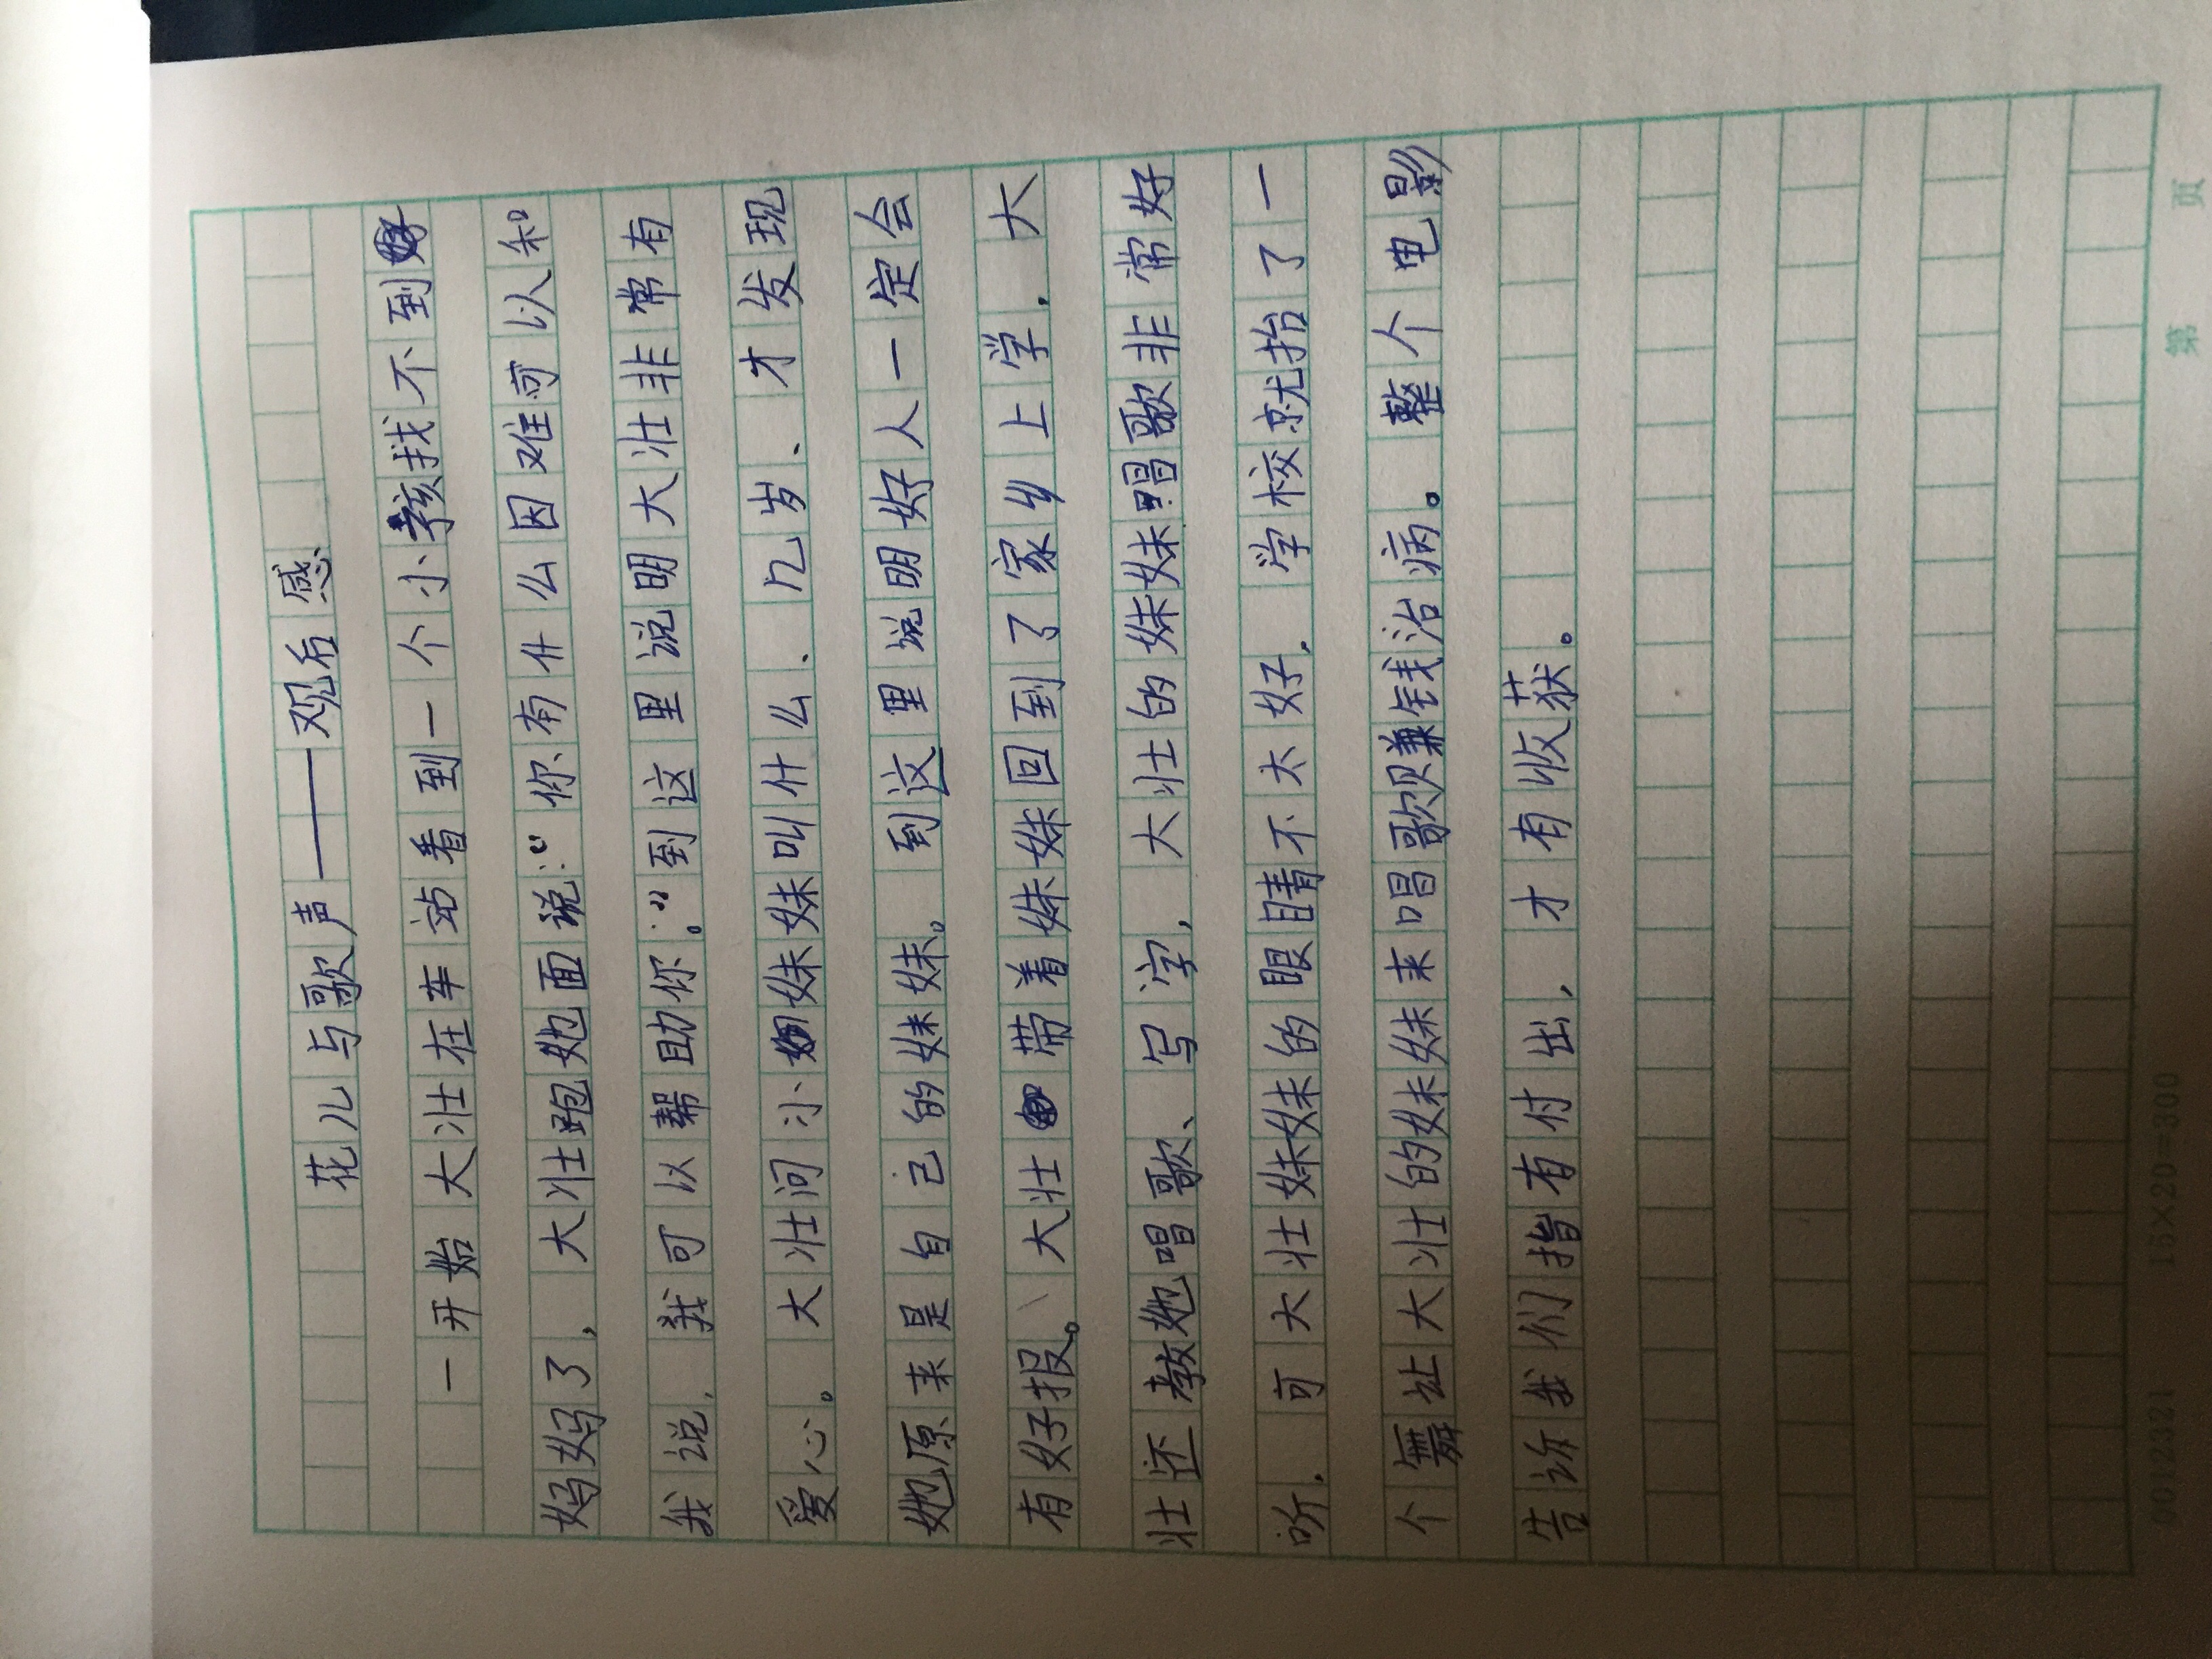 花儿与歌声——观后感
一开始大壮在车站看到一个小孩找不到
妈妈了，大壮跑她面说：“你有什么因难可以和
我说，我可以帮助你。”到这里说明大壮非常有
爱心。大壮问小妹妹叫什么、几岁、才发现
她原来是自己的妹妹。到这里说明好人一定会
有好报。大壮带着妹妹回到了家乡上学．大
壮还教她唱歌、写字，大壮的妹妹唱歌非常好
听．可大壮妹妹的眼睛不太好．学校就抬了一
个舞址大壮的妹妹来唱歌赚钱治病。整个电影
告诉我们指有付出，才有收获。
0012321 15×20=300 第 页